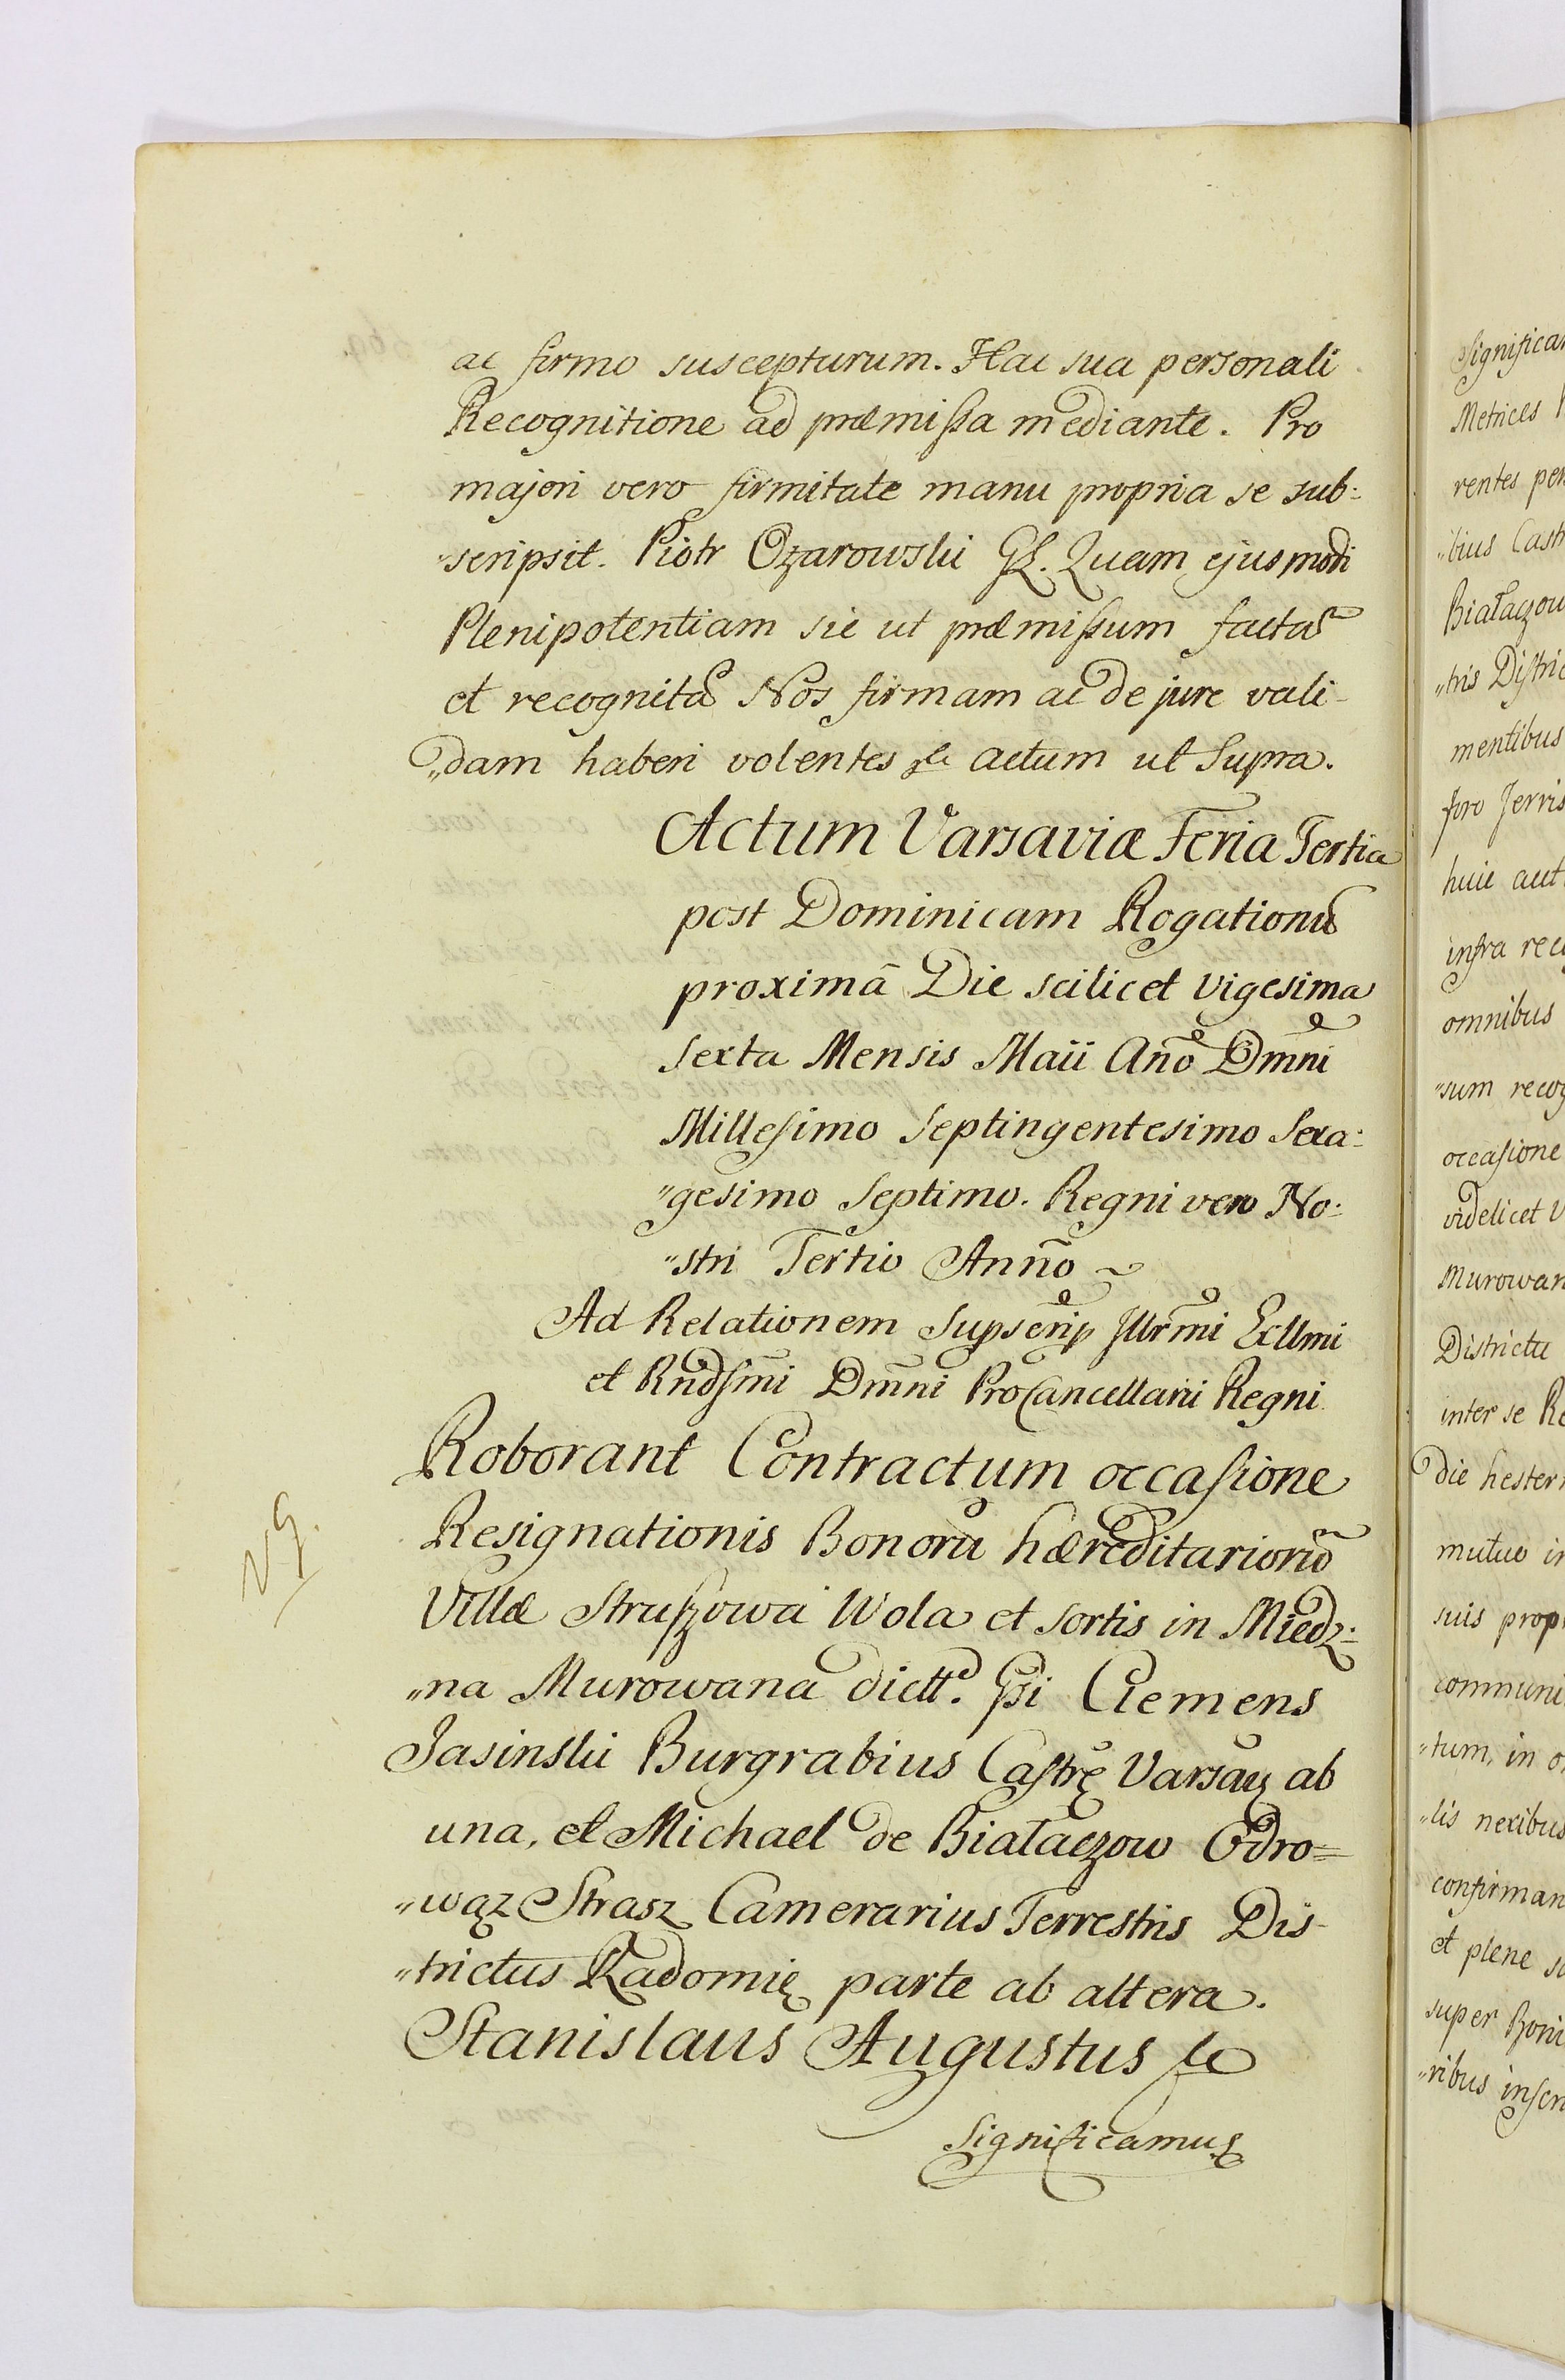 ac firmo suscepturum. Hac sua personali
Recognitione ad præmissa mediante. Pro
majori vero firmitate manu propria se sub:
"scripsit. Piotr Ożarowski GL. Quam ejusmodi
Plenipotentiam sic ut præmissum factã
et recognitã Nos firmam ac de jure vali-
"dam haberi volentes &c actum ut Supra.
Actum Varsaviæ Feria Tertia
post Dominicam Rogationũ
proximã Die scilicet vigesima
sexta Mensis Maii Año Dm̃ni
Millesimo Septingentesimo Sexa:
"gesimo Septimo. Regni vero No:
"stri Tertio Anño
Ad Relationem Supscrip Illr̃mi Ecllmi
et Rñdsm̃i Dm̃ni ProCancellarii Regni
Roborant Contractum occasione
Resignationis Bonorũ hæreditariorũ
Villæ Struszowa Wola et sortis in Miedz:
"na Murowana dictt. Gsi Clemens
Jasinski Burgrabius Castrę Varsaȳ ab
una, et Michael de Białaczow Odro=
"wąz Strasz Camerarius Terrestris Dis-
"trictus Radomię parte ab altera.
Stanislaus Augustus &c
Significamus
Significa
Metrices
rentes per
"bius Cast
Białaczow
"tris Distric
mentibus
foro Terris
huic aut
infra rec
omnibus
"sum recog
occasione
videlicet V
Murowan
Districtu
inter se Re
die hester
mutuo in
suis prop
communi
"tum, in o
"lis nexibus
confirman
et plene s
super Boni
"ribus inscr